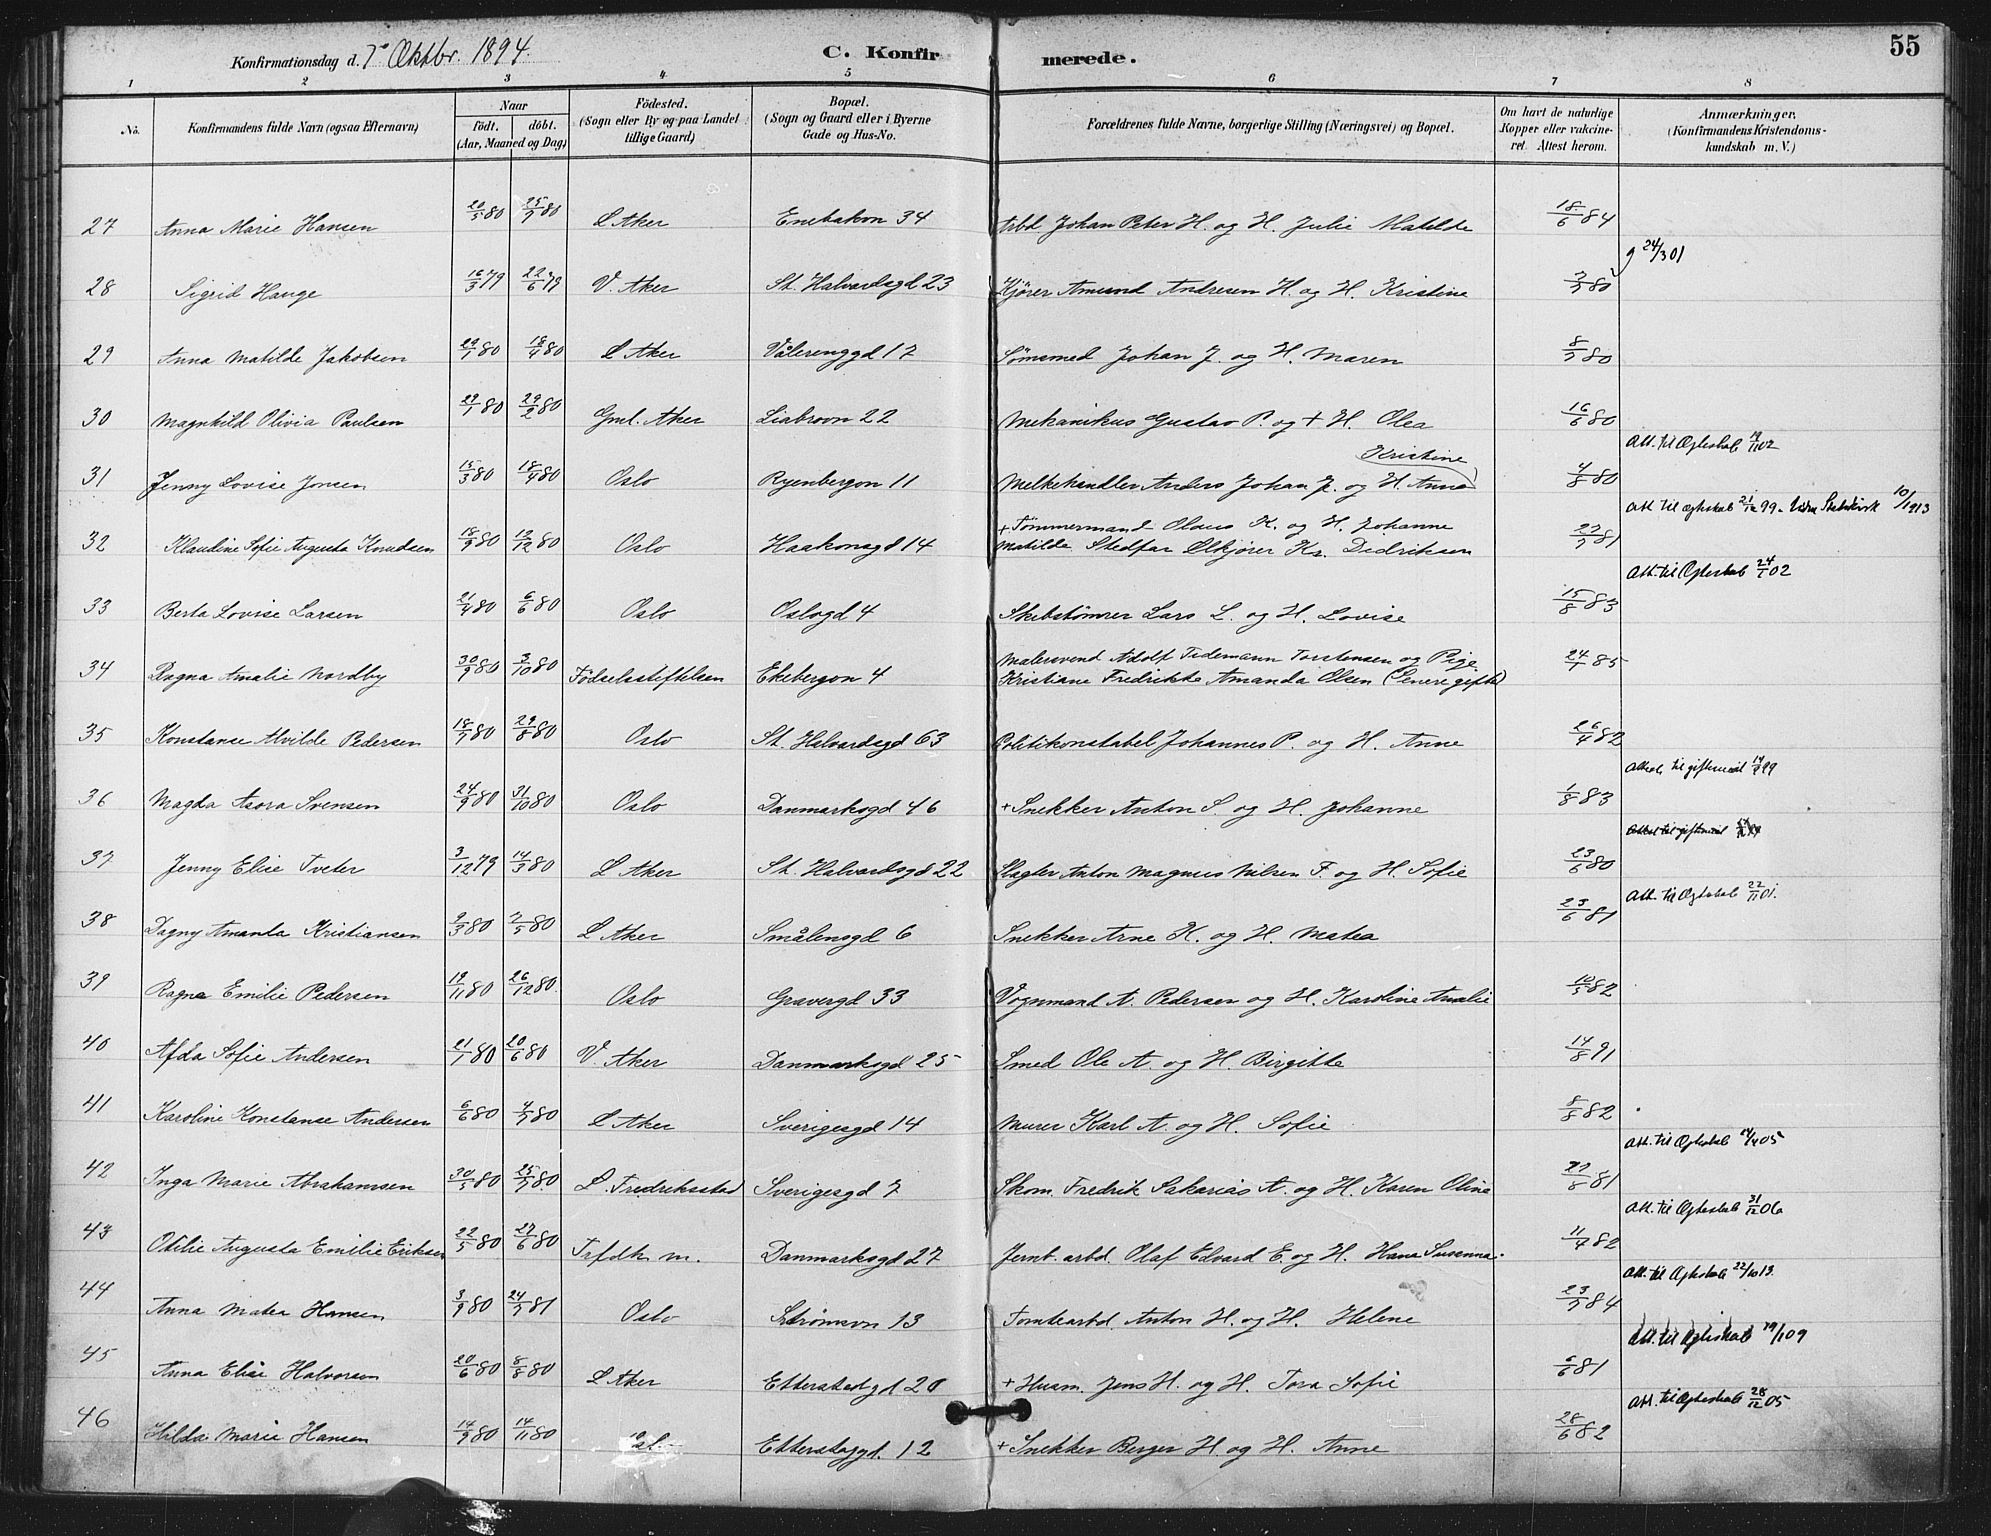 Konfirmationsdag d. 7de Oktbr. 1894.
C. Konfirmerede.
55
1 2 3 4 5 6 7 8
No. Konfirmandens fulde Navn (ogsaa Efternavn) Naar födt. döbt. (Aar, Maaned og Dag) Födested. (Sogn eller By og paa Landet tillige Gaard) Bopæl. (Sogn og Gaard eller i Byerne Gade og Hus-No. Forældrenes fulde Navne, borgerlige Stilling (Næringsvei) og Bopæl. Om havt de naturlige Kopper eller vakcineret. Attest herom. Anmærkninger. (Konfirmandens Kristendomskundskab m. V.)
27 Anna Marie Hansen 20/5 80 25/7 80 L Aker Enebakvn 34 Arbd. Johan Peter H. og H. Julie Matilde 18/6 84
g 24/3 01
28 Sigrid Hauge 16/3 79 22/6 79 V. Aker St. Halvardsgd 23 Kjører Amund Andresen H. og H. Kristine 2/7 80
29 Anna Matilde Jakobsen 29/1 80 18/4 80 L Aker Vålerenggd 17 Sömsmed Johan J. og H. Maren 8/7 80
30 Magnhild Olivia Paulsen 29/1 80 29/2 80 Gml. Aker Liabrovn 22 Mekanikus Gustav P. og + H. Olea 16/6 80
Att. til Ægteskab 19/11 02
31 Jenny Lovise Jonsen 15/3 80 18/4 80 Oslo Ryenbergvn 11 Melkehandler Anders Johan J. og H. Anna Kristine 4/8 80
Att til ægteskab 21/12 99 - 10/1 1913
32 Klaudine Sofie Augusta Knudsen 18/9 80 19/12 80 Oslo Haakonsgd 14 + Tømmermand Olaus K. og H. Johanne
Matilde Stedfar Ølkjører Kr. Didriksen 27/7 81
Att. til Ægteskab 24/1 02
33 Berta Lovise Larsen 21/4 80 6/6 80 Oslo Oslogd 4 Skibstømrer Lars L. og H. Lovise 15/8 83
34 Dagna Amalie Nordby 30/9 80 3/10 80 Fødselsstiftelsen Ekebergvn 4 Malersvend Adolf Tidemann Torstensen og Pige
Kristiane Fredrikke Amanda Olsen (Senere gifte) 24/7 85
35 Konstanse Alvilde Pedersen 18/7 80 29/8 80 Oslo St. Halvardsgd 63 Politikonstabel Johannes P. og H. Anne 26/4 82
Attest til giftermål 14/9 99
36 Magda Asora Svensen 24/9 80 31/10 80 Oslo Danmarksgd 46 + Snekker Anton S. og H. Johanne 1/8 83
Attest til giftermål
37 Jenny Elise Tveter 3/12 79 14/3 80 L Aker St. Halvardsgd 22 Slagter Anton Magnus Nilsen T. og H. Sofie 23/6 80
Att. til Ægteskab 22/11 01.
38 Dagny Amanda Kristiansen 9/3 80 2/5 80 L Aker Smålensgd 6 Snekker Arne K. og H. Matea 23/6 81
39 Ragna Emilie Pedersen 19/11 80 26/12 80 Oslo Gravergd 33 Vognmand A. Pedersen og H. Karoline Amalie 10/5 82
40 Afda Sofie Andersen 21/1 80 20/6 80 V. Aker Danmarksgd 25 Smed Ole A. og H. Birgitte 14/8 91
41 Karoline Konstanse Andersen 6/6 80 4/7 80 L Aker Sverigesgd 14 Murer Karl A. og H. Sofie 8/8 82
Att. til Ægteskab 14/4 05
42 Inga Marie Abrahamsen 30/5 80 25/7 80 L. Fredriksstad Sverigesgd 7 Skom. Fredrik Sakarias A. og H. Karen Oline 27/8 81
Att. til Ægteskab 31/12 06
43 Otilie Augusta Emilie Eriksen 22/5 80 27/6 80 Trfdk m. Danmarksgd 27 Jernb. arbd. Olaf Edvard E. og H. Hana Susanna. 11/4 82
Att. til Ægteskab 22/10 13.
44 Anna Matea Hansen 3/9 80 24/7 81 Oslo Strömsvn 13 Tomtearbd. Anton H. og H. Helene 23/7 84
Att. til Ægteskab 19/1 09
45 Anna Elise Halvorsen 20/6 80 8/8 80 L Aker Etterstadgd 20 + Husm. Jens H. og H. Tora Sofie 6/6 81
Att. til Ægteskab 28/12 05
46 Hilda Marie Hansen 14/9 80 14/11 80 Etterstadgd. 12 + Snekker Berger H. og H. Anne 28/6 82